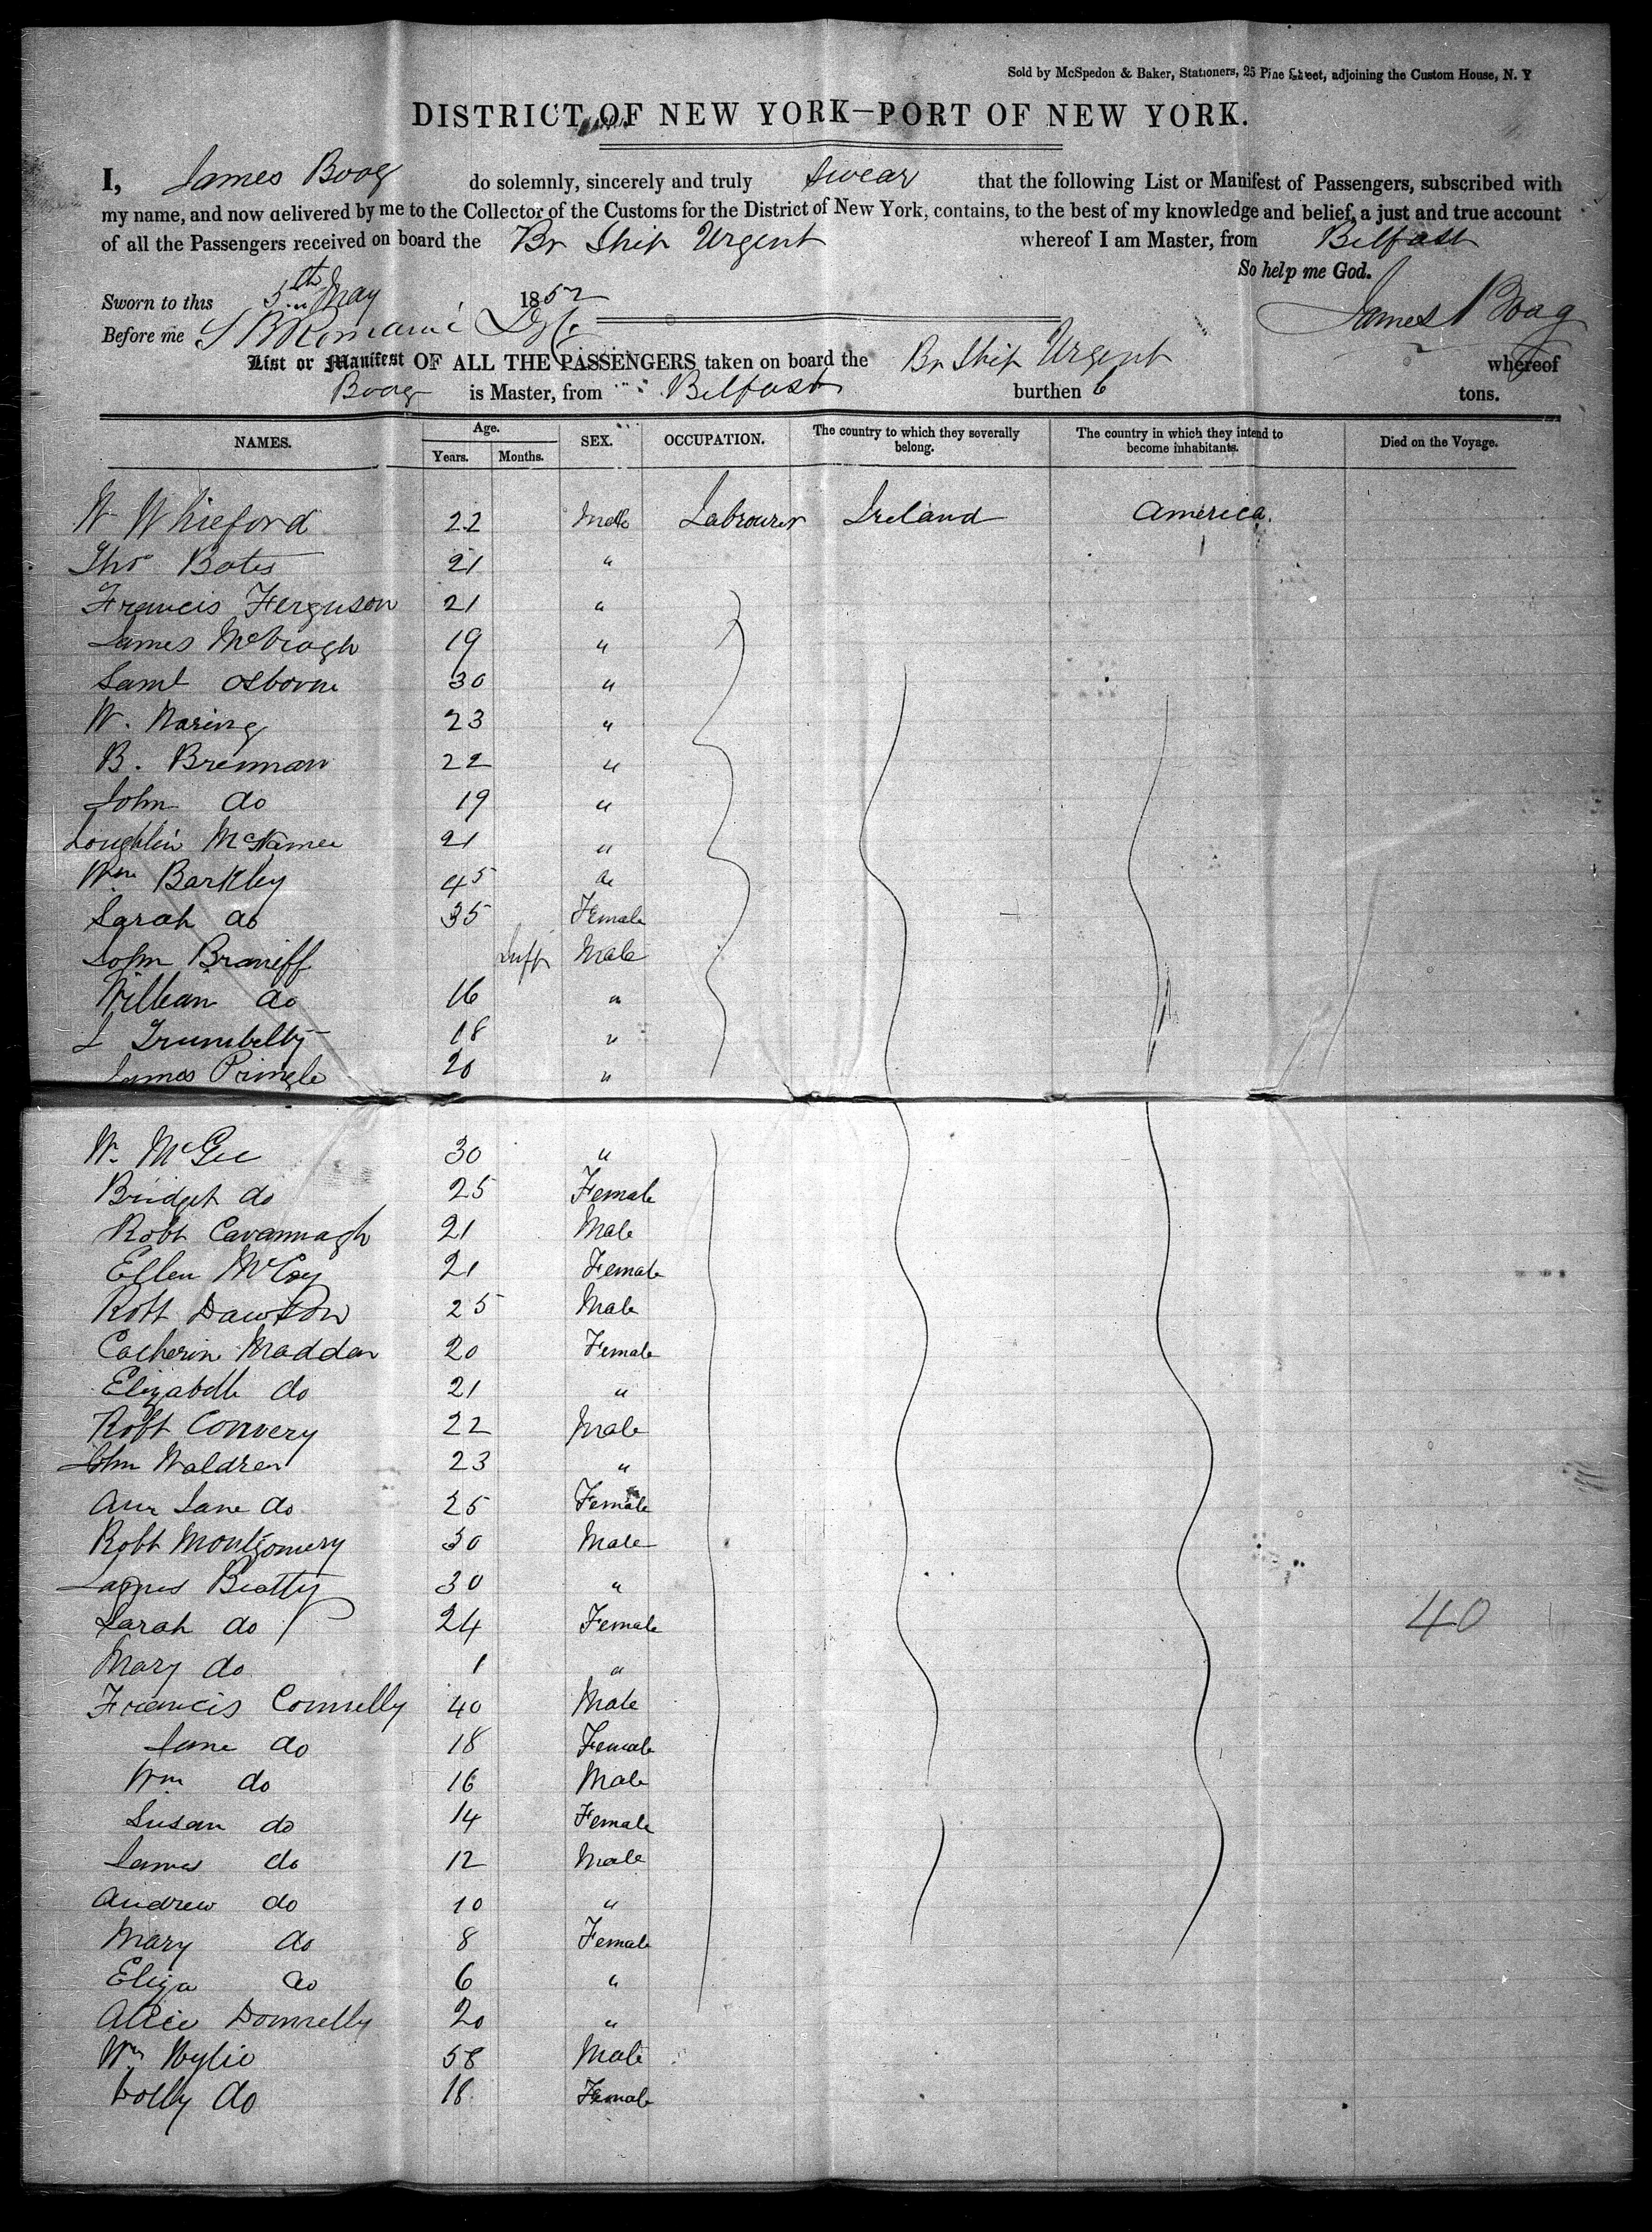 Sold by McSpedon & Baker, Stationers, 25 Pine Street, adjoining the Custom House, N. Y
DISTRICT OF NEW YORK—PORT OF NEW YORK.
I, James Boag do solemnly, sincerely and truly Swear that the following List or Manifest of Passengers, subscribed with
my name, and now delivered by me to the Collector of the Customs for the District of New York, contains, to the best of my knowledge and belief, a just and true account
of all the Passengers received on board the Br Ship Urgent whereof I am Master, from Belfast
So help me God.
Sworn to this 5th May 1852
James Boag
Before me
List or Manifest OF ALL THE PASSENGERS taken on board the Br Ship Urgent whereof
Boag is Master, from Belfast burthen 6 tons.
NAMES. Age. Years. Months. SEX. OCCUPATION. The country to which they severally belong. The country in which they intend to become inhabitants. Died on the Voyage.
W Whieford 22 Male Labourer Ireland America.
Thos Bates 21 "
Francis Ferguson 21 "
James 19 "
Saml Osborne 30 "
W. Waring 23 "
B. Brennan 22 "
John do 19 "
Loughlin McNamee 21 "
Wm Barkley 45 do
Sarah do 35 Female
John Branieff Infr Male
William do 16 "
18 "
James Pringle 20 "
W. McGee 30 "
Bridget do 25 Female
Robt Cavannagh 21 Male
Ellen McCoy 21 Female
Robt Dawson 25 Male
Catherin Madden 20 Female
Elizabeth do 21 "
Robt Convery 22 Male
John Waldren 23 "
Ann Jane do 25 Female
Robt Montgomery 30 Male
James Beatty 30 "
Sarah do 24 Female 40
Mary do 1 "
Francis Connelly 40 Male
Jane do 18 Female
Wm do 16 Male
Susan do 14 Female
James do 12 Male
Andrew do 10 "
Mary do 8 Female
Eliza do 6 "
Alice Donnelly 20 "
Wm Wylie 58 Male
Dolly do 18 Female